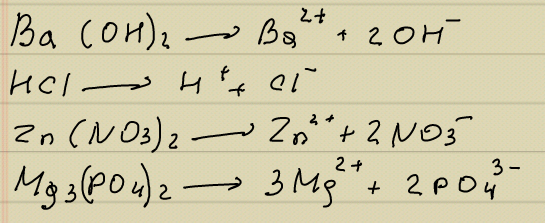 Ba (OH)₂ → Ba²⁺ + 2 OH⁻
HCl → H⁺ + Cl⁻
Zn (NO3)₂ → Zn²⁺ + 2 NO3⁻
Mg₃(PO4)₂ → 3Mg²⁺ + 2PO₄³⁻